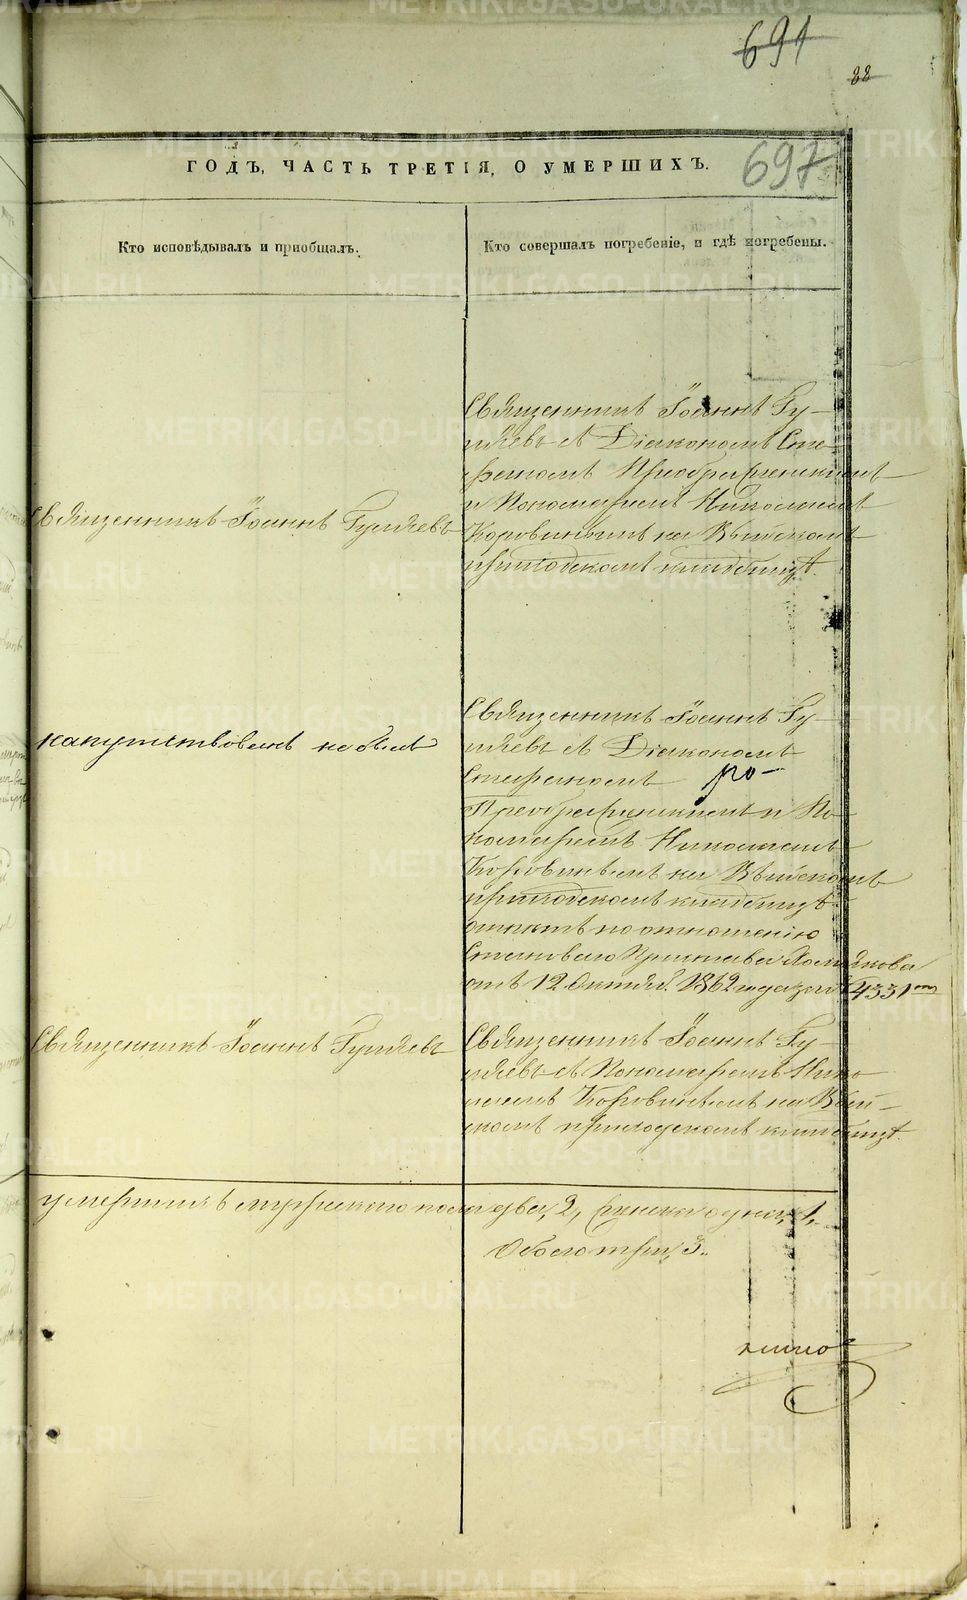 691
88
697
ГОДЪ, ЧАСТЬ ТРЕТІЯ, О УМЕРШИХЪ.
Кто исповѣдывалъ и пріобщалъ.
Кто совершалъ погребеніе, и гдѣ погребены.
Священникъ Іоаннъ Гуляевъ
Священникъ Іоаннъ Гу-
ляевъ съ Діакономъ Сте-
фаномъ Преображенскимъ
и Пономаремъ Николаемъ
Коровинымъ на Выйскомъ
приходскомъ кладбищѣ.
напутствованъ не былъ
Священникъ Іоаннъ Гу-
ляевъ съ Діакономъ
Стефаномъ
Преображенскимъ и По-
номаремъ Николаемъ
Коровинымъ на Выйскомъ
приходскомъ кладбищѣ
по отношенію
Становаго Пристава
отъ 12 Октяб. 1862 года за № 4331
Священникъ Іоаннъ Гуляевъ
Священникъ Іоаннъ Гу-
ляевъ съ Пономаремъ Нико-
лаемъ Коровинымъ на Вый-
скомъ приходскомъ кладбищѣ.
умершихъ мужескаго пола два, 2, женска одна, 1,
Обоего три, 3.
METRIKI.GASO-URAL.RU